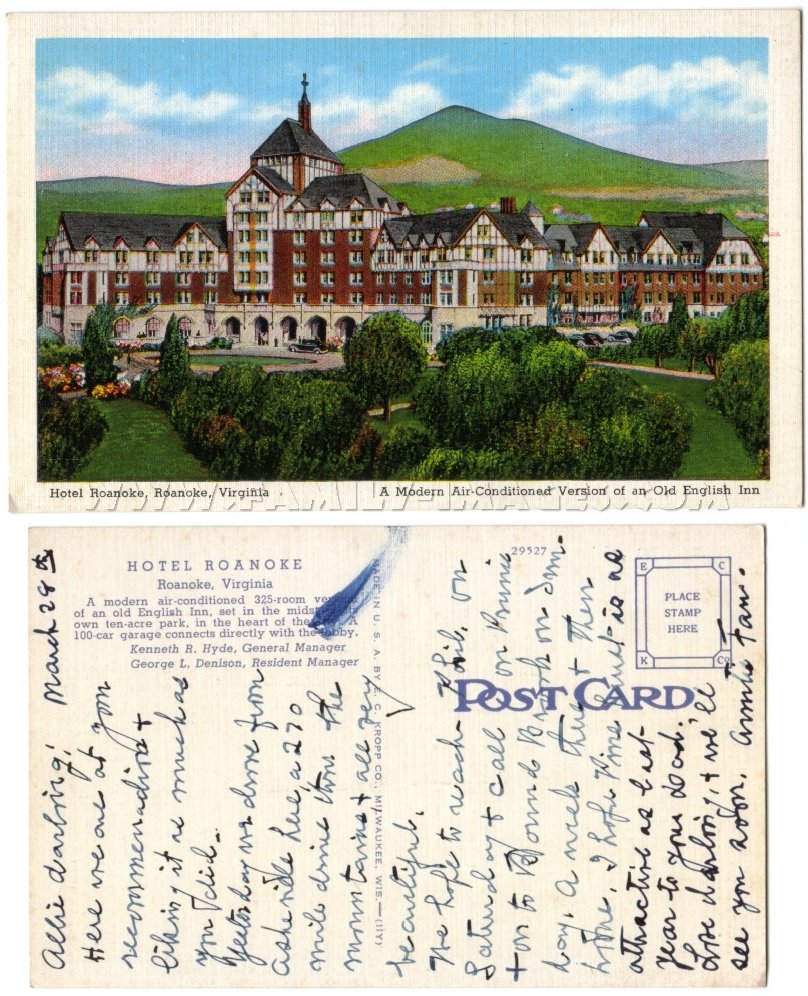 Hotel Roanoke, Roanoke, Virginia
A Modern Air-Conditioned Version of an Old English Inn
WWW.FAMILY-IMAGES.COM
HOTEL ROANOKE
Roanoke, Virginia
A modern air-conditioned 325-room
of an old English Inn, set in the midst
own ten-acre park, in the heart of the A
100-car garage connects directly with the lobby.
Kenneth R. Hyde, General Manager
George L. Denison, Resident Manager
MADE IN U. S. A. BY E. C. KROPP CO., MILWAUKEE, WIS.
29527
E C
PLACE
STAMP
HERE
K Co
POST CARD
March 28th
Allie darling;
Here we are at your
recommendation &
liking it as much as
you did.
Yesterday we drove from
Asheville here, a 270
mile drive thru the
mountains & all very
beautiful.
We hope to reach Phil. on
Saturday & call on
ton to Bound Brook on Sun-
day. A week there & then
home. I hope Pinehurst is as
attractive as last
year to your Dad.
Love darling, & we'll
see you soon. Auntie Fan.